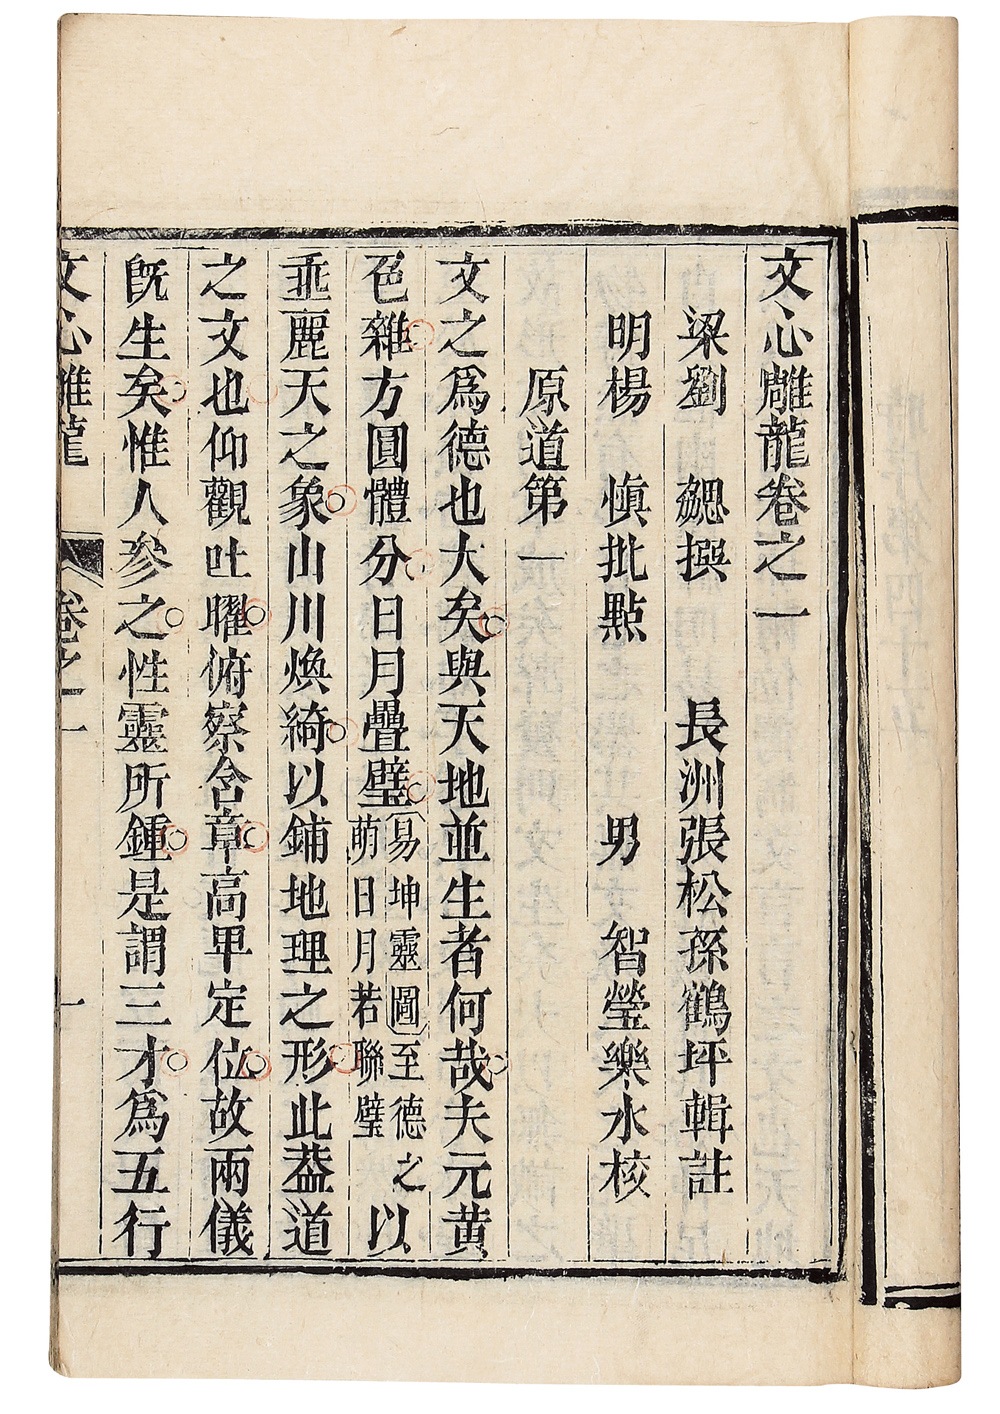 文心雕龍卷之一
梁劉勰撰 長洲張松孫鶴坪輯註
明楊慎批點 男智瑩樂水校
原道第一
文之爲德也大矣與天地並生者何哉夫元黄
色雜方圓體分日月疊璧易坤靈圖至德之萌日月若聯璧以
垂麗天之象山川煥綺以鋪地理之形此葢道
之文也仰觀吐曜俯察含章高卑定位故兩儀
旣生矣惟人參之性靈所鍾是謂三才爲五行
文心雕龍 卷之一 一